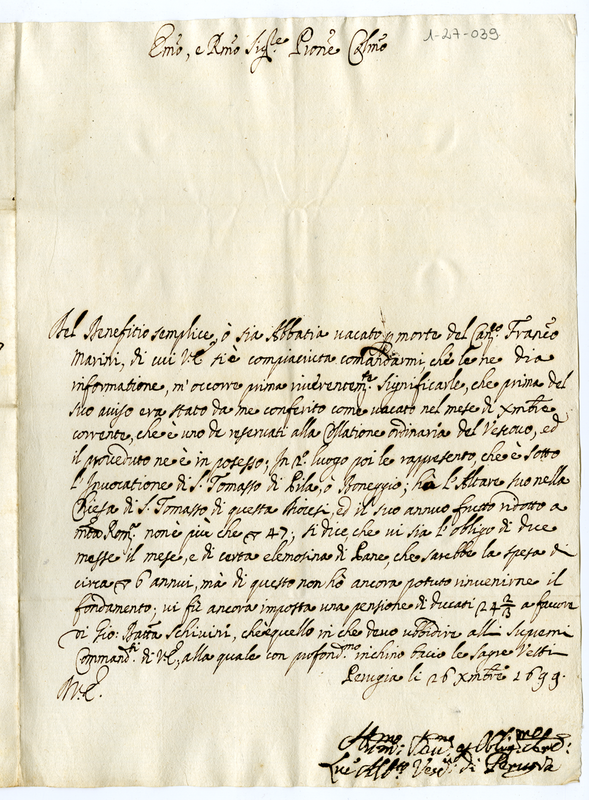 1-27-039
Emo, e Rmo Sigre Prone Colmo
Del Beneficio semplice, ò sia Abbatia vacato p morte del Canco Franco
Marini, di cui VE si è compiaciuta comandarmi, che le ne dia
informatione, m'occorre prima riverentemte significarle, che prima del
suo aviso era stato da me conferito come vacato nel mese di Xmbre
corrente, che è uno de reservati alla Collatione ordinaria del Vescovo, ed
il proveduto ne è in possesso; In 2o luogo poi le rappresento, che è sotto
l'Invocatione di S. Tomasso di Pila, ò; hà l'Altare suo nella
Chiesa di S. Tomasso di questa Diocesi, ed il suo annuo frutto ridotto a
mta Roma non è più che 47; si dice, che vi sia l'obligo di due
messe il mese, e di certa elemosina di Pane, che sarebbe la spesa di
circa 6 annui, mà di questo non hò ancora potuto rinvenirne il
fondamento; vi fù ancora imposta una pensione di ducati 24 2/3 a favore
di Gio: Batta Schivini, che è quello in che devo ubbidire alli supremi
Commandti di VE, alla quale con profondmo inchino bacio le sagre Vesti
Perugia li 26 Xmbre 1699.
VE.
Humo Devmo et Obligmo
di Perugia